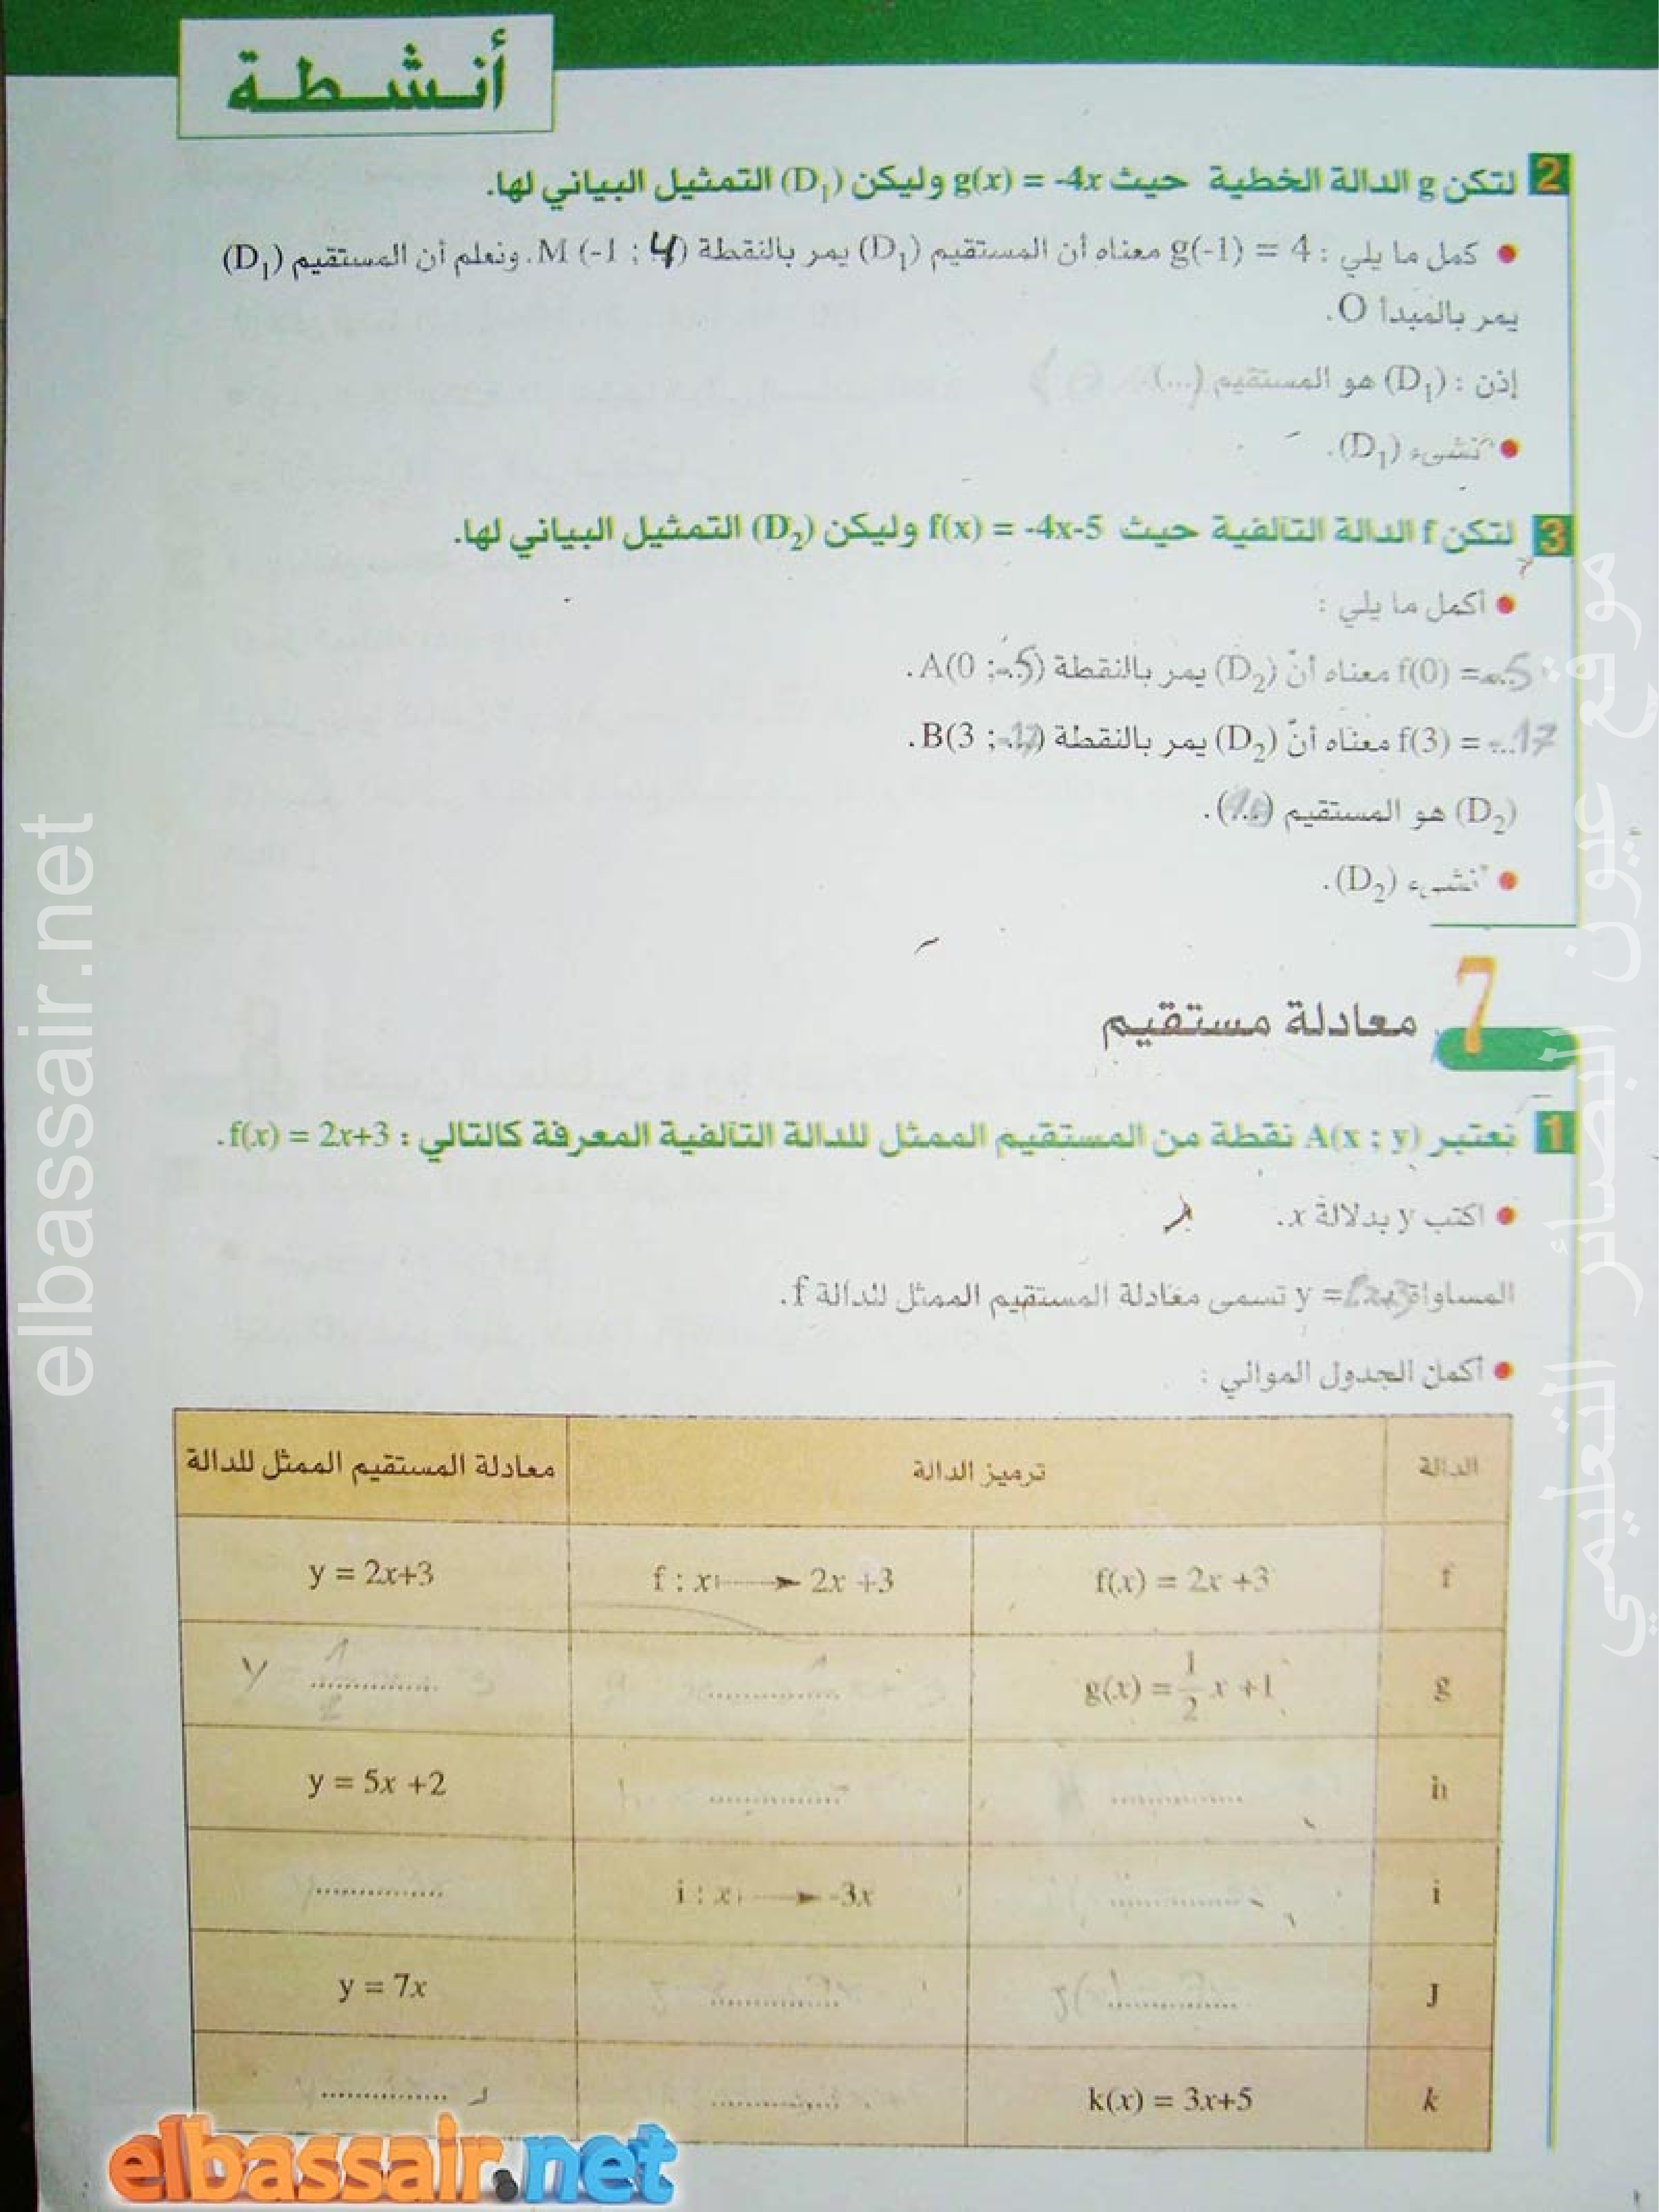 أنشطة
2 لتكن g الدالة الخطية حيث g(x) = -4x وليكن (D₁) التمثيل البياني لها.
• كمل ما يلي : g(-1) = 4 معناه أن المستقيم (D₁) يمر بالنقطة M (-1 ; 4). ونعلم أن المستقيم (D₁)
يمر بالمبدأ O.
إذن : (D₁) هو المستقيم (...).
• نشىء (D₁).
3 لتكن f الدالة التآلفية حيث f(x) = -4x-5 وليكن (D₂) التمثيل البياني لها.
• أكمل ما يلي :
f(0) =...5 معناه أنّ (D₂) يمر بالنقطة A(0 ;-..5).
f(3) = -...17 معناه أنّ (D₂) يمر بالنقطة B(3 ;-17).
(D₂) هو المستقيم (...).
• نشىء (D₂).
7 معادلة مستقيم
1 نعتبر A(x ; y) نقطة من المستقيم الممثل للدالة التآلفية المعرفة كالتالي : f(x) = 2x+3.
• اكتب y بدلالة x.
المساواة y =2x+3 تسمى معادلة المستقيم الممثل للدالة f.
• أكمل الجدول الموالي :
الدالة ترميز الدالة معادلة المستقيم الممثل للدالة
f f(x) = 2x +3 f : x ⟼ 2x +3 y = 2x+3
g g(x) = 1/2 x +1 ............... y ...............
h ............... ............... y = 5x +2
i ............... i : x ⟼ -3x ...............
J ............... ............... y = 7x
k k(x) = 3x+5 ............... ...............
elbassair.net
elbassair.net
موقع عيون البصائر التعليمي